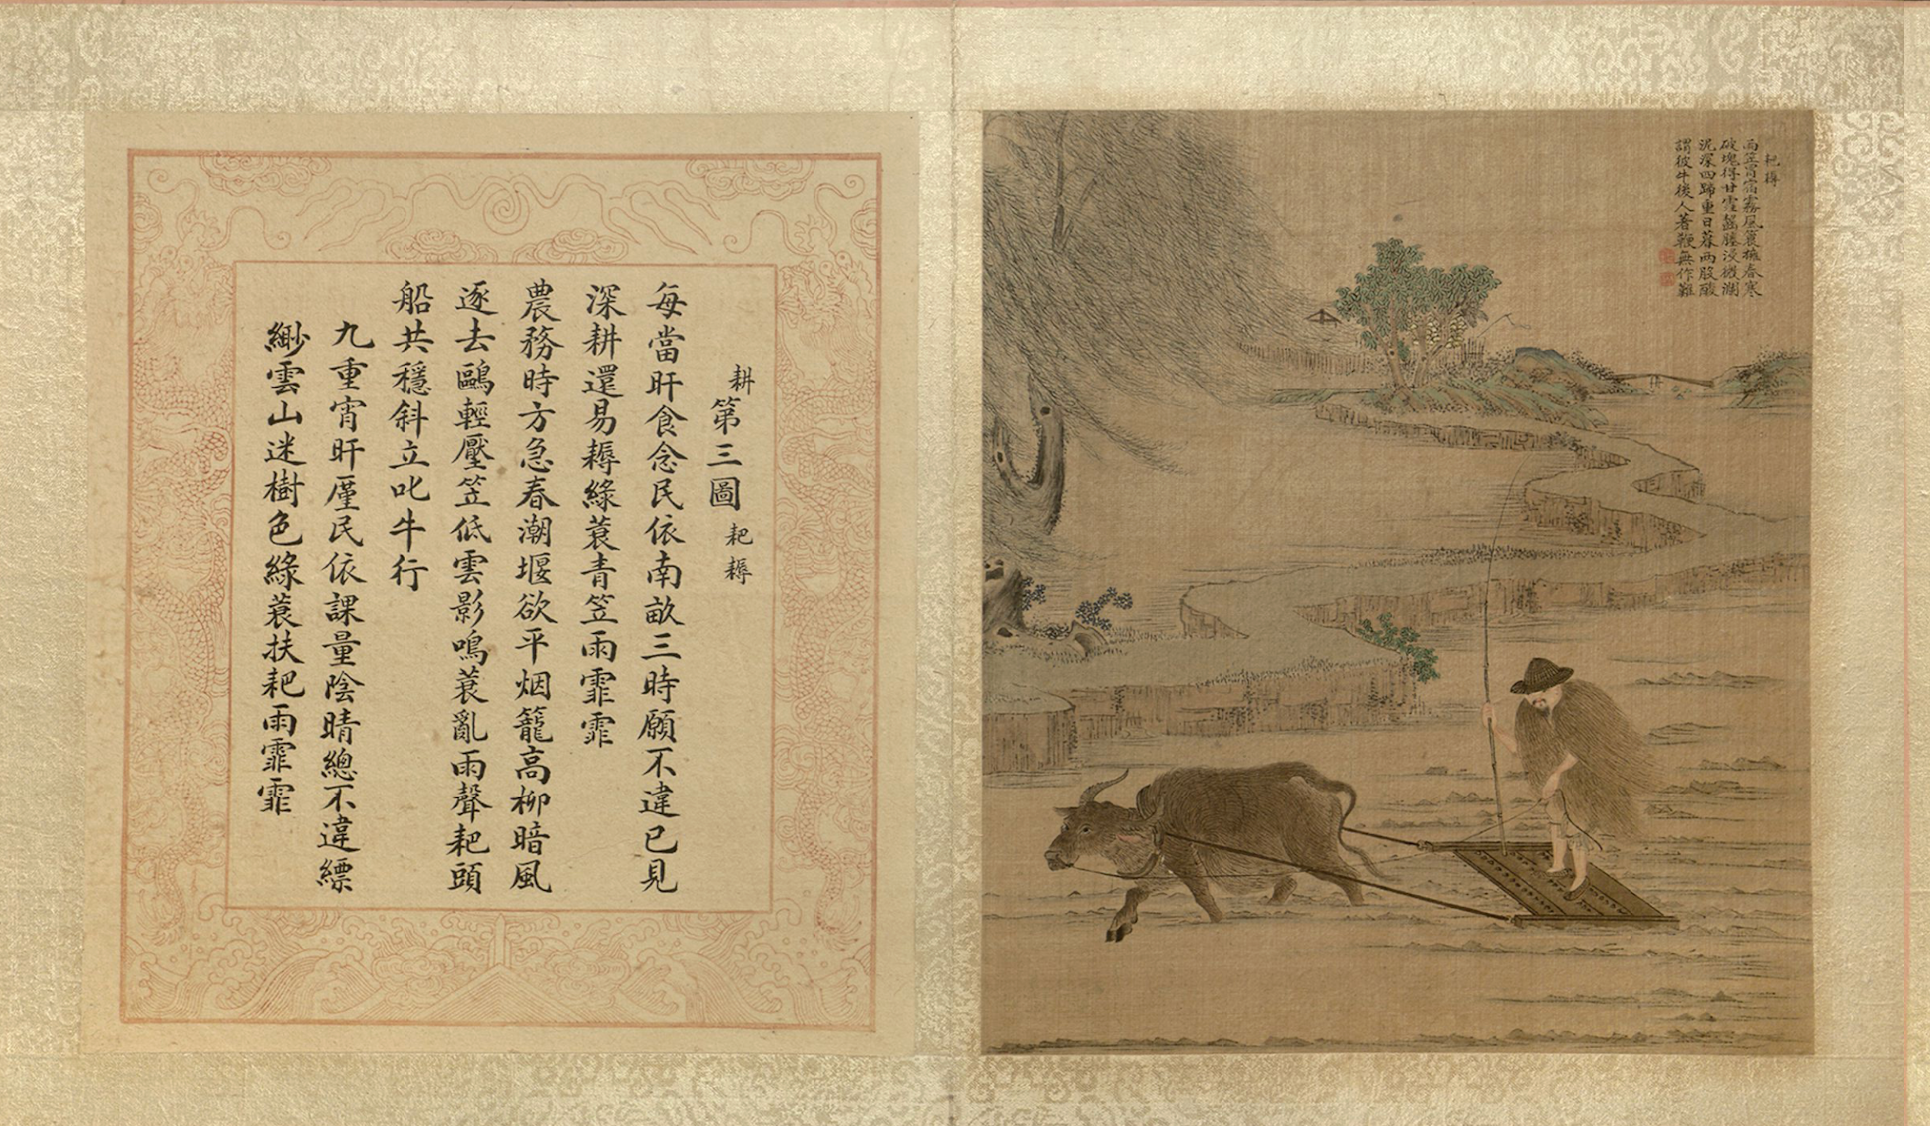 耙耨
雨笠冒宿霧風蓑擁春寒
破塊得甘霔齧塍浸微瀾
泥深四蹄重日暮兩股酸
謂彼牛後人著鞭無作難
耕第三圖耙耨
每當旰食念民依南畝三時願不違已見
深耕還易耨綠蓑青笠雨霏霏
農務時方急春潮堰欲平烟籠高柳暗風
逐去鷗輕壓笠低雲影鳴蓑亂雨聲耙頭
船共穩斜立叱牛行
九重宵旰厪民依課量陰晴總不違縹
緲雲山迷樹色綠蓑扶耙雨霏霏